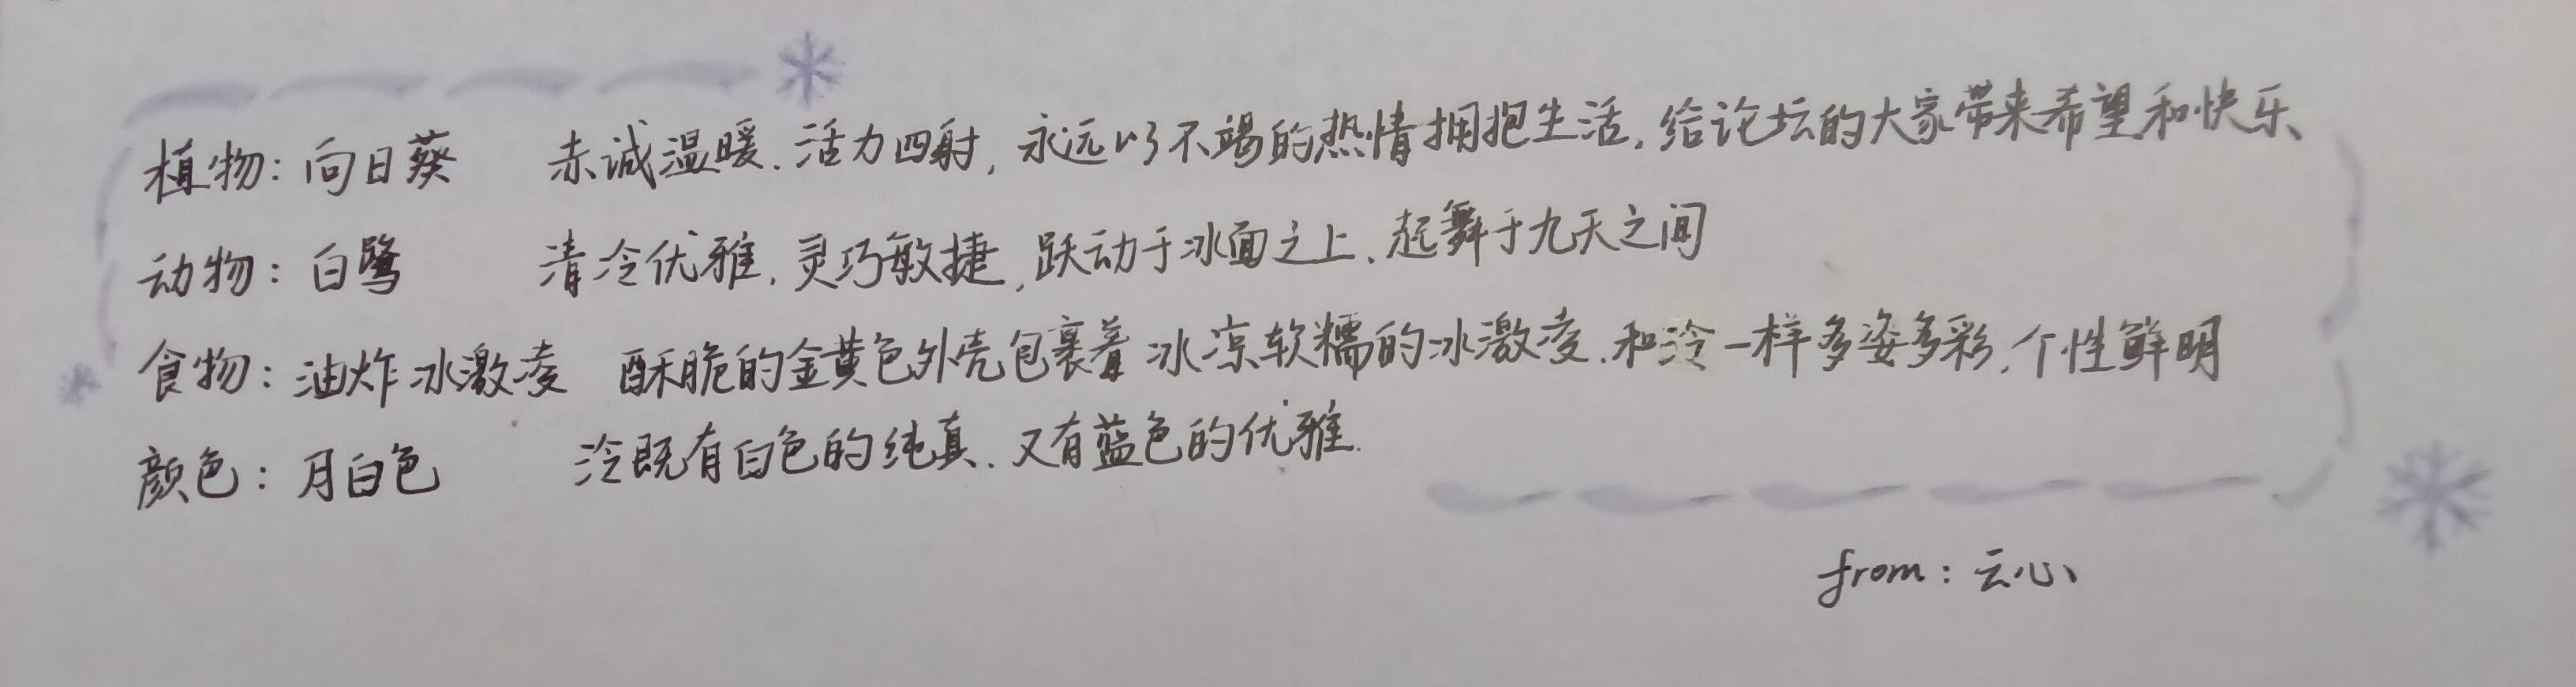 植物：向日葵　赤诚温暖、活力四射，永远以不竭的热情拥抱生活，给论坛的大家带来希望和快乐
动物：白鹭　清冷优雅，灵巧敏捷，跃动于冰面之上，起舞于九天之间
食物：油炸冰激凌　酥脆的金黄色外壳包裹着冰凉软糯的冰激凌，和泠一样多姿多彩，个性鲜明
颜色：月白色　泠既有白色的纯真，又有蓝色的优雅.
from：云心